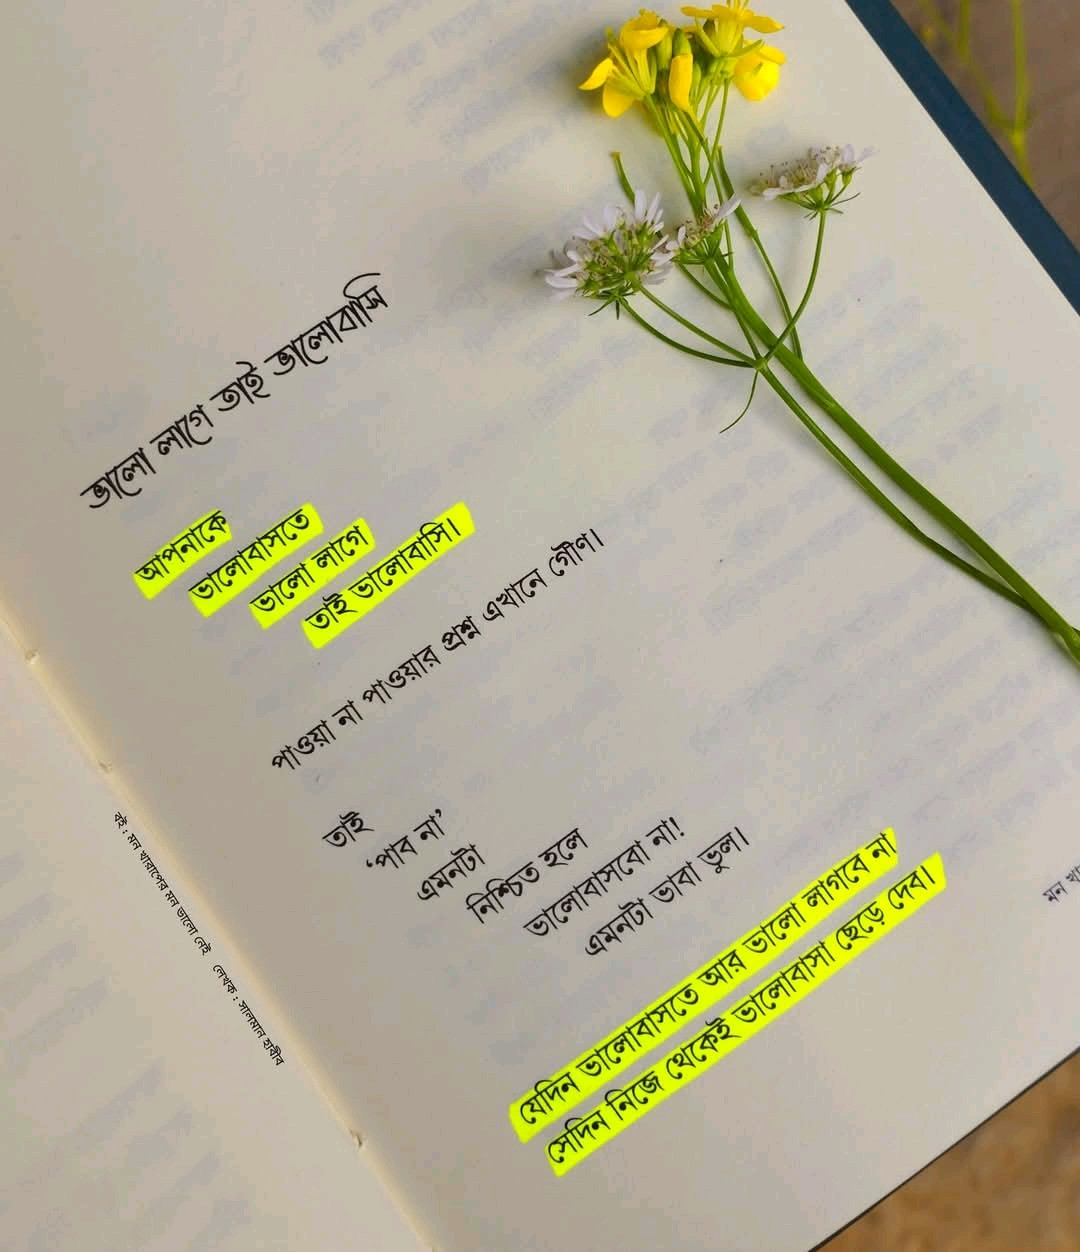 ভালো লাগে তাই ভালোবাসি
আপনাকে
ভালোবাসতে
ভালো লাগে
তাই ভালোবাসি।
পাওয়া না পাওয়ার প্রশ্ন এখানে গৌণ।
তাই
‘পাব না’
এমনটা
নিশ্চিত হলে
ভালোবাসবো না!
এমনটা ভাবা ভুল।
যেদিন ভালোবাসতে আর ভালো লাগবে না
সেদিন নিজে থেকেই ভালোবাসা ছেড়ে দেব।
বই : মন খারাপের মন ভালো নেই লেখক : সালমান হাবীব
মন